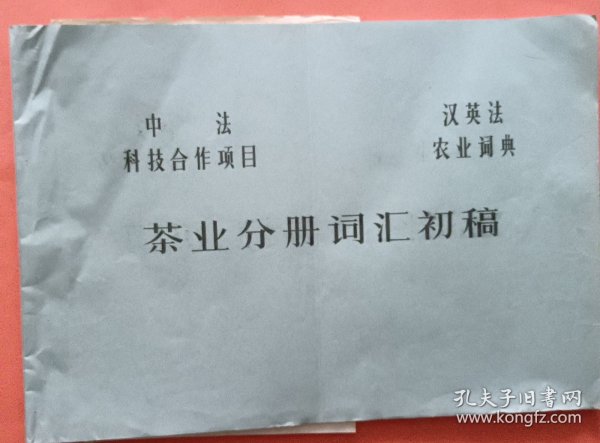 中 法
科技合作项目
汉英法
农业词典
茶业分册词汇初稿
孔夫子旧书网
www.kongfz.com